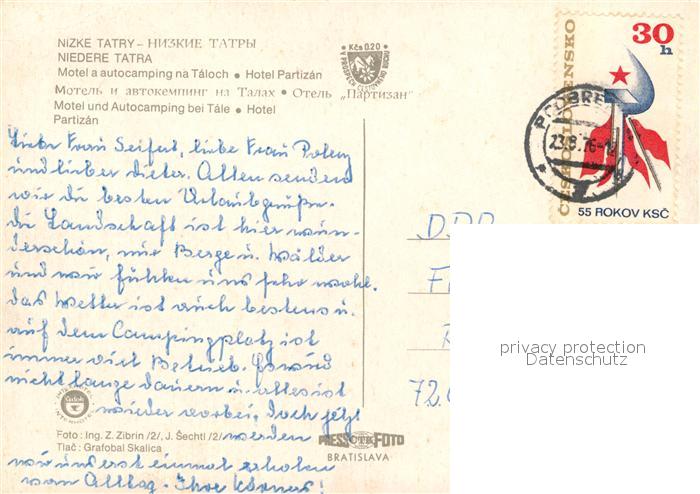 NÍZKE TATRY – НИЗКИЕ ТАТРЫ
NIEDERE TATRA
Motel a autocamping na Táloch • Hotel Partizán
Мотель и автокемпинг на Талах • Отель „Партизан"
Motel und Autocamping bei Tále • Hotel
Partizán
Kčs 0,20
V PROSPECH CESTOVNÉHO RUCHU
ČESKOSLOVENSKO
30 h
55 ROKOV KSČ
23.8.76
Liebe Frau Seifert, liebe Frau
und lieber Dieter. Allen senden
wir die besten Urlaubsgrüße.
die Landschaft ist hier wun-
derschön, nur Berge u. Wälder
und wir fühlen uns sehr wohl.
das Wetter ist auch bestens u.
auf dem Campingplatz ist
immer viel Betrieb. Es wird
nicht lange dauern u. alles ist
wieder vorbei, doch jetzt
werden
wir uns erst einmal erholen
vom Alltag. Ihre Körners!
DDR
72
INTERHOTEL
Čedok
Foto: Ing. Z. Zibrin /2/, J. Šechtl /2/
Tlač: Grafobal Skalica
PRESSFOTO
BRATISLAVA
privacy protection
Datenschutz